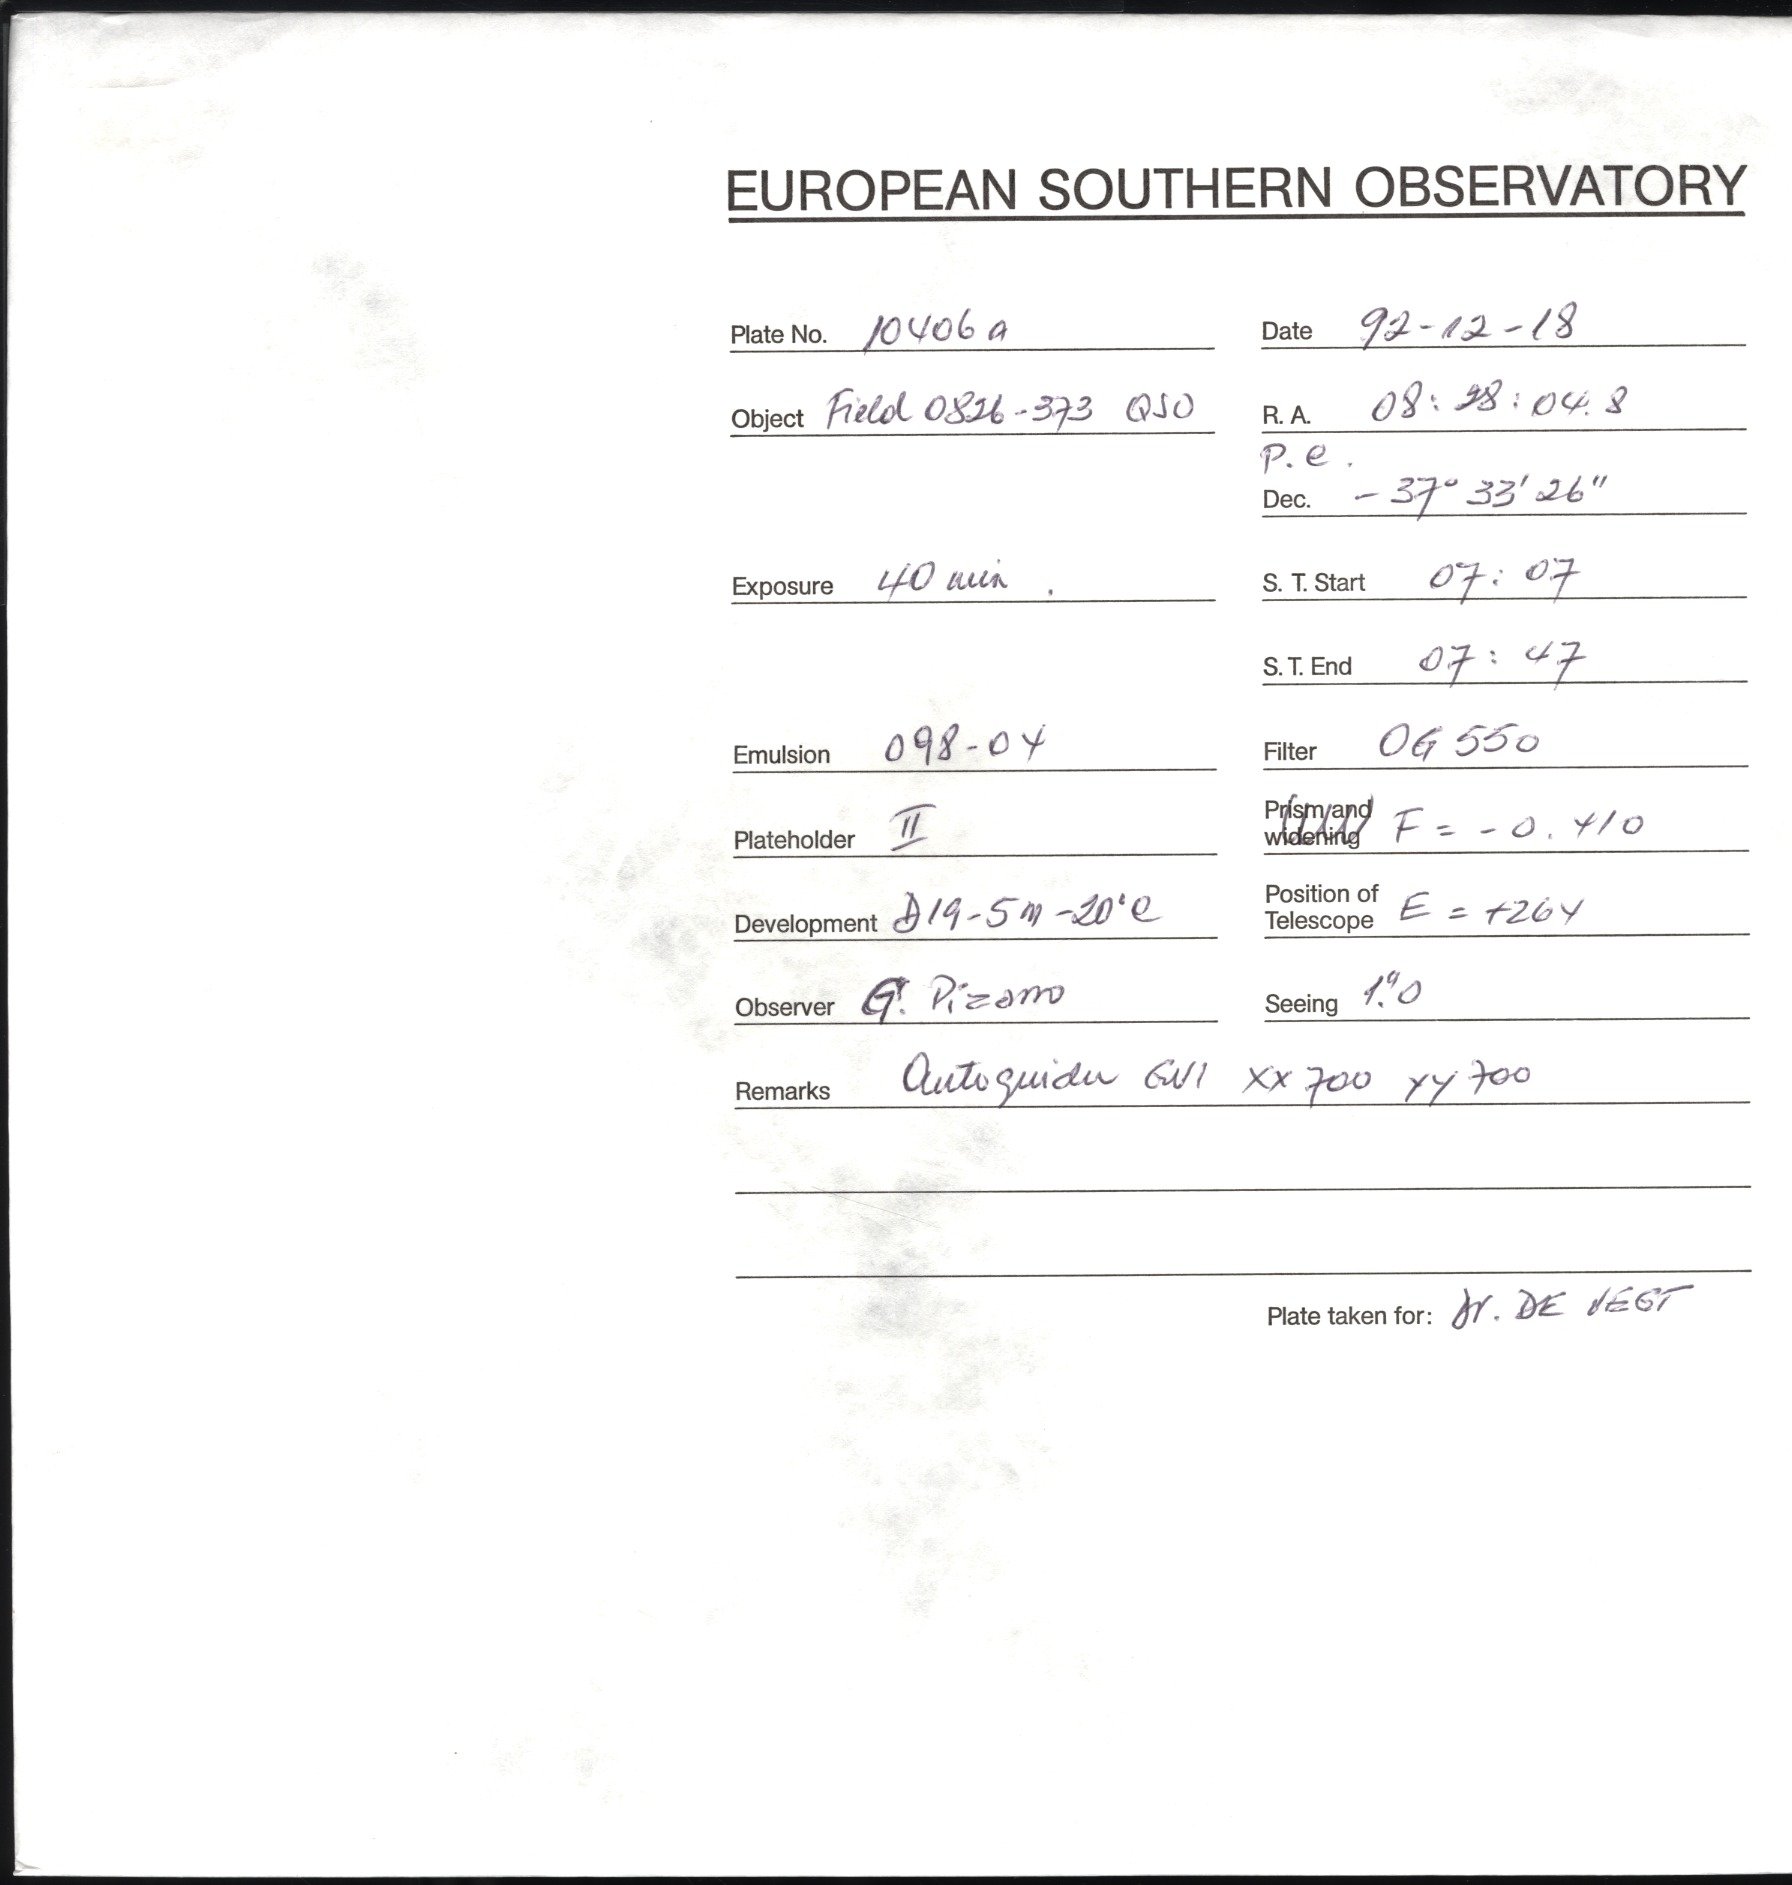 EUROPEAN SOUTHERN OBSERVATORY
Plate No. 10406a
Date 92-12-18
Object Field 0826-373 QSO
R. A. 08:28:04.8
P. e.
Dec. - 37° 33' 26"
Exposure 40 min .
S. T. Start 07:07
S. T. End 07:47
Emulsion 098-04
Filter OG 550
Plateholder II
Prism and widening F = - 0.410
Development D19-5m-20°C
Position of Telescope E = +264
Observer G. Pizarro
Seeing 1."0
Remarks Autoguider XX 700 YY 700
Plate taken for: Dr. DE VEGT